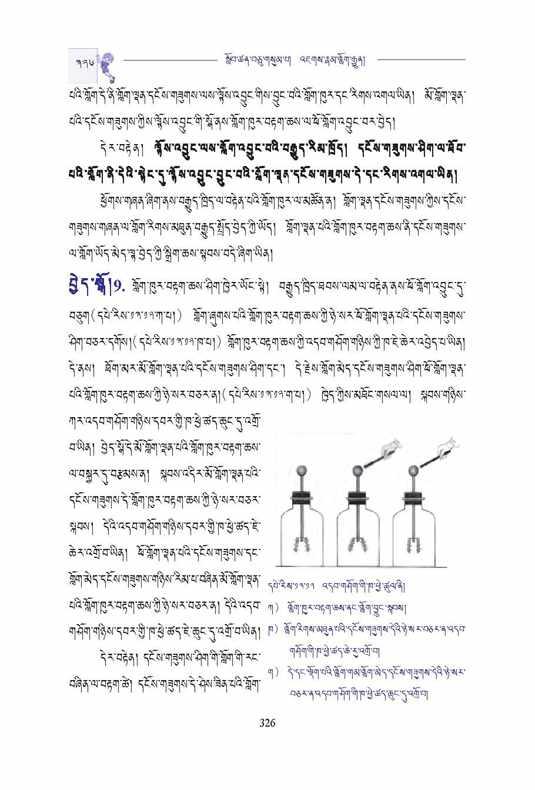 ༣༢༦
སློབ་ཚན་བཅུ་གསུམ་པ། འཇགས་རྣམ་གློག་རྒྱུན།
པའི་གློག་དེ་ནི་གློག་ལྡན་དངོས་གཟུགས་ལས་ལྟོས་འབྱུང་གིས་བྱུང་བའི་གློག་ཁུར་དང་རིགས་འགལ་ཡིན། མོ་གློག་ལྡན་
པའི་དངོས་གཟུགས་ཀྱིས་ལྟོས་འབྱུང་གི་སྒོ་ནས་གློག་ཁུར་བརྟག་ཆས་ལ་ཕོ་གློག་འབྱུང་བར་བྱེད།
དེར་བརྟེན། ལྟོས་འབྱུང་ལས་གློག་འབྱུང་བའི་བརྒྱུད་རིམ་ཁྲོད། དངོས་གཟུགས་ཤིག་ལ་ཐོབ་
པའི་གློག་ནི་དེའི་སྟེང་དུ་ལྟོས་འབྱུང་བྱུང་བའི་གློག་ལྡན་དངོས་གཟུགས་དེ་དང་རིགས་འགལ་ཡིན།
ཕྱོགས་གཞན་ཞིག་ནས་བརྒྱུད་ཁྲིད་ལ་བརྟེན་པའི་གློག་ཁུར་ལ་མཚོན་ན། གློག་ལྡན་དངོས་གཟུགས་ཀྱིས་དངོས་
གཟུགས་གཞན་ལ་གློག་རིགས་མཐུན་བརྒྱུད་སྤྲོད་བྱེད་ཀྱི་ཡོད། གློག་ལྡན་པའི་གློག་ཁུར་བརྟག་ཆས་ནི་དངོས་གཟུགས་
ལ་གློག་ཡོད་མེད་ལྟ་བྱེད་ཀྱི་སྒྲིག་ཆས་སྟབས་བདེ་ཞིག་ཡིན།
བྱེད་སྒོ།༡. གློག་ཁུར་བརྟག་ཆས་ཤིག་ཁྱེར་ཡོང་སྟེ། བརྒྱུད་ཁྲིད་ཐབས་ལམ་ལ་བརྟེན་ནས་ཕོ་གློག་འབྱུང་དུ་
བཅུག (དཔེ་རིས་༡༣་༡༡་ཀ་པ།) གློག་ཞུགས་པའི་གློག་ཁུར་བརྟག་ཆས་ཀྱི་ཉེ་སར་ཕོ་གློག་ལྡན་པའི་དངོས་གཟུགས་
ཤིག་བཅར་དགོས། (དཔེ་རིས་༡༣་༡༡་ཁ་པ།) གློག་ཁུར་བརྟག་ཆས་ཀྱི་འདབ་གཤོག་གཉིས་ཀྱི་ཁ་ཇེ་ཆེར་འབྱེད་པ་ཡིན།
དེ་ནས། ཐོག་མར་མོ་གློག་ལྡན་པའི་དངོས་གཟུགས་ཤིག་དང་། དེ་རྗེས་གློག་མེད་དངོས་གཟུགས་ཤིག་ཕོ་གློག་ལྡན་
པའི་གློག་ཁུར་བརྟག་ཆས་ཀྱི་ཉེ་སར་བཅར་ན། (དཔེ་རིས་༡༣་༡༡་ག་པ།) ཁྱེད་ཀྱིས་མཐོང་གསལ་ལ། སྐབས་གཉིས་
ཀར་འདབ་གཤོག་གཉིས་དབར་གྱི་ཁ་ཕྱེ་ཚད་ཆུང་དུ་འགྲོ་
བ་ཡིན། བྱེད་སྒོ་དེ་མོ་གློག་ལྡན་པའི་གློག་ཁུར་བརྟག་ཆས་
ལ་བསྐྱར་དུ་བརྩམས་ན། སྐབས་འདིར་མོ་གློག་ལྡན་པའི་
དངོས་གཟུགས་དེ་གློག་ཁུར་བརྟག་ཆས་ཀྱི་ཉེ་སར་བཅར་
སྐབས། དེའི་འདབ་གཤོག་གཉིས་དབར་གྱི་ཁ་ཕྱེ་ཚད་ཇེ་
ཆེར་འགྲོ་བ་ཡིན། ཕོ་གློག་ལྡན་པའི་དངོས་གཟུགས་དང་
གློག་མེད་དངོས་གཟུགས་གཉིས་རིམ་པ་བཞིན་མོ་གློག་ལྡན་
པའི་གློག་ཁུར་བརྟག་ཆས་ཀྱི་ཉེ་སར་བཅར་ན། དེའི་འདབ་
གཤོག་གཉིས་དབར་གྱི་ཁ་ཕྱེ་ཚད་ཇེ་ཆུང་དུ་འགྲོ་བ་ཡིན།
དེར་བརྟེན། དངོས་གཟུགས་ཤིག་གི་གློག་གི་རང་
བཞིན་ལ་བརྟག་ཚེ། དངོས་གཟུགས་དེ་ཤེས་ཟིན་པའི་གློག་
དཔེ་རིས་༡༣་༡༡ འདབ་གཤོག་གི་ཁ་ཕྱེ་ཚུལ་ནི།
ཀ) གློག་ཁུར་བརྟག་ཆས་ནང་གློག་བྱུང་སྐབས།
ཁ) གློག་རིགས་མཐུན་པའི་དངོས་གཟུགས་དེའི་ཉེ་སར་བཅར་ན་འདབ་
གཤོག་གི་ཁ་ཕྱེ་ཚད་ཆེ་རུ་འགྲོ་བ།
ག) དེ་དང་ལྡོག་པའི་གློག་གམ་གློག་མེད་དངོས་གཟུགས་དེའི་ཉེ་སར་
བཅར་ན་འདབ་གཤོག་གི་ཁ་ཕྱེ་ཚད་ཆུང་དུ་འགྲོ་བ།
326